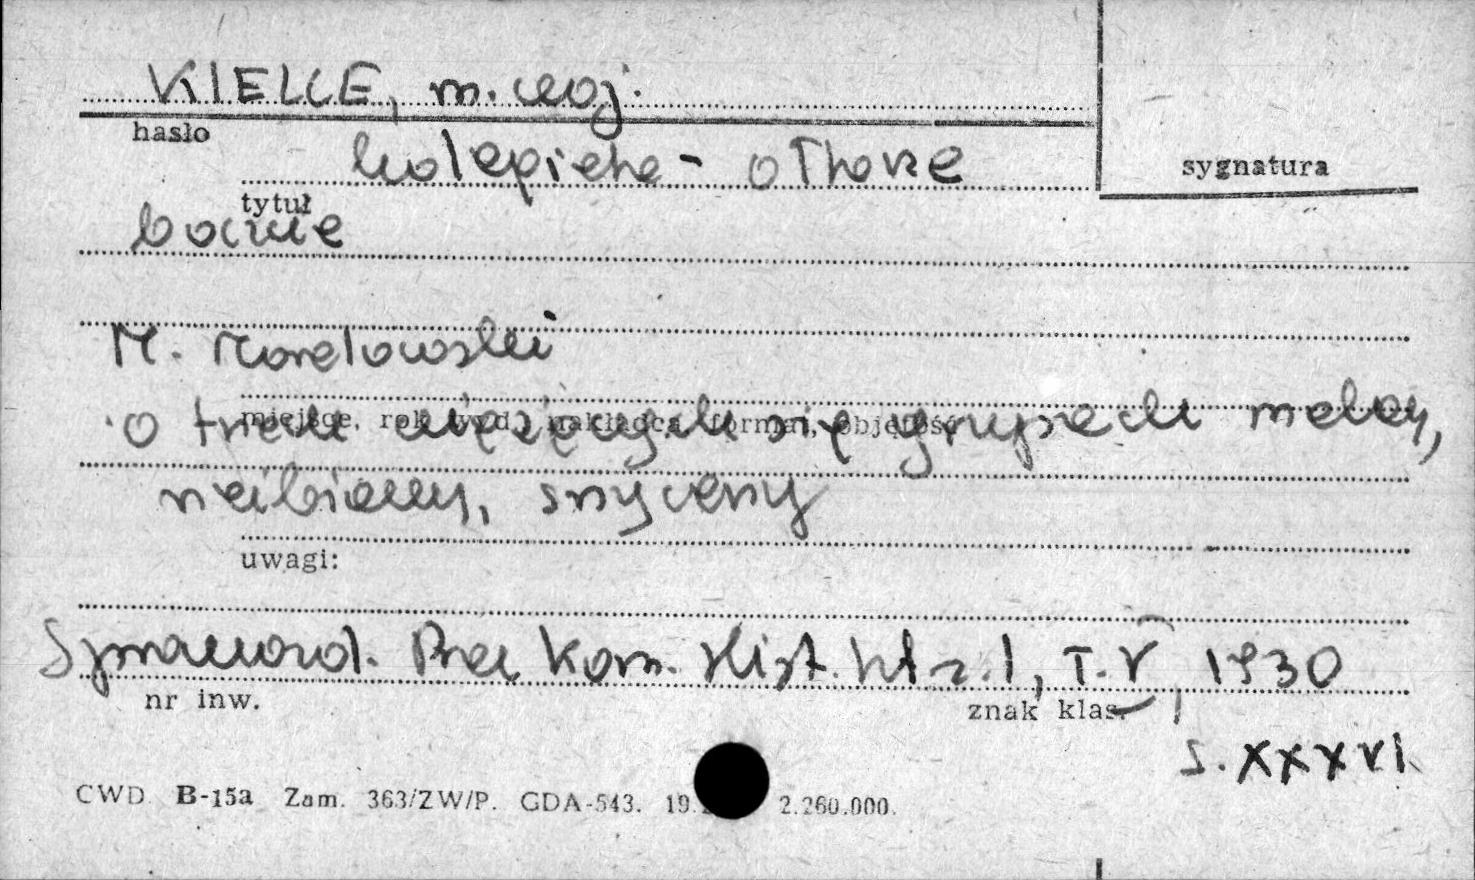 KIELCE, m. woj.
hasło
kolegiata - ołtarze
sygnatura
tytuł
boczne
M. Morelowski
miejsce, rok wyd., nakładca, format, objętość
o trzech wiążących się grupach malary,
rzeźbiarzy, snycerzy
uwagi:
Sprawozd. Prac Kom. Hist. Szt. z. 1, T. V, 1930
nr inw.
znak klas.
s. XXXVI
CWD B-15a Zam. 363/ZW/P. GDA-543. 19. 2.260.000.